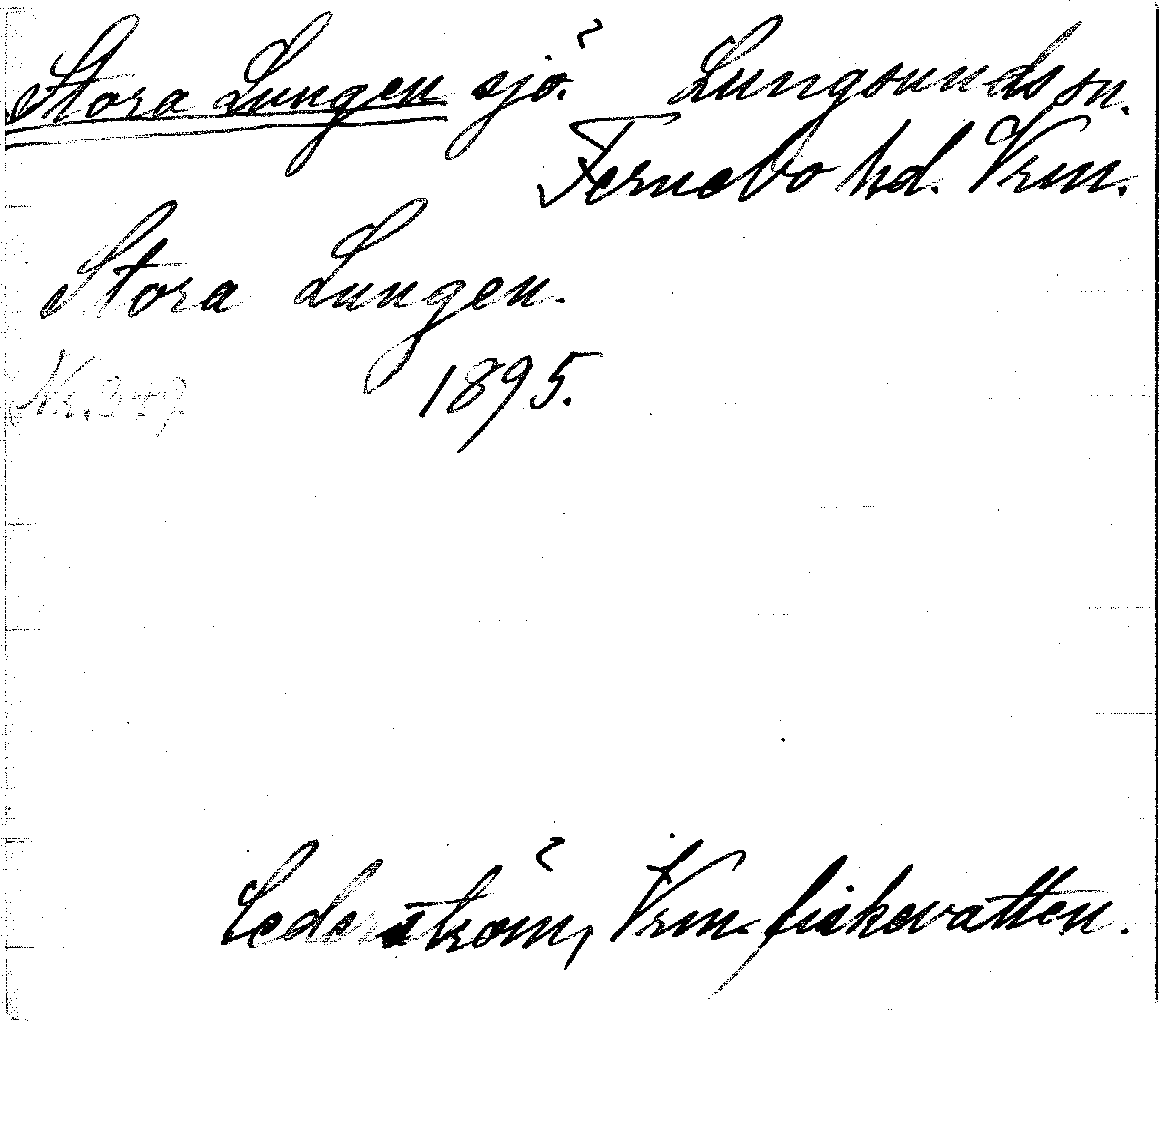 Stora Lungen sjö. Lungsunds sn.
Fernebo hd. Vrm.
Stora Lungen.
1895.
Cederström, Vrm. fiskevatten.